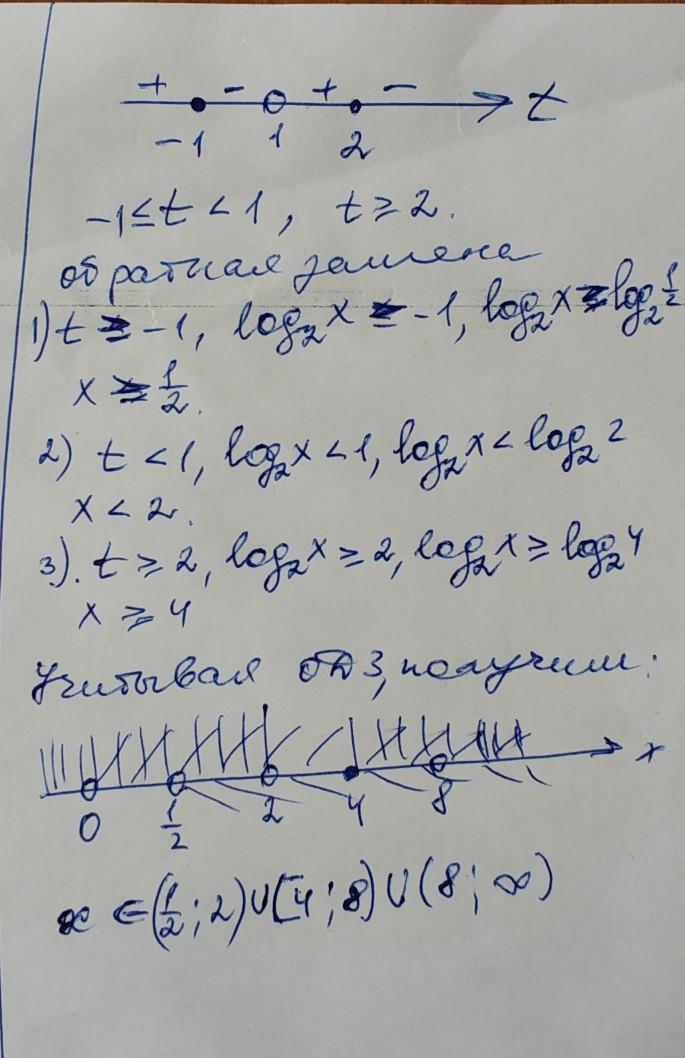 + - + - t
-1 1 2
-1 ≤ t < 1, t ≥ 2.
обратная замена
1) t ≥ -1, log₂x ≥ -1, log₂x ≥ log₂ 1/2
x ≥ 1/2.
2) t < 1, log₂x < 1, log₂x < log₂ 2
x < 2.
3). t ≥ 2, log₂x ≥ 2, log₂x ≥ log₂4
x ≥ 4
Учитывая ОДЗ, получим:
x
0 1/2 2 4 8
x ∈ (1/2; 2) ∪ [4; 8) ∪ (8; ∞)